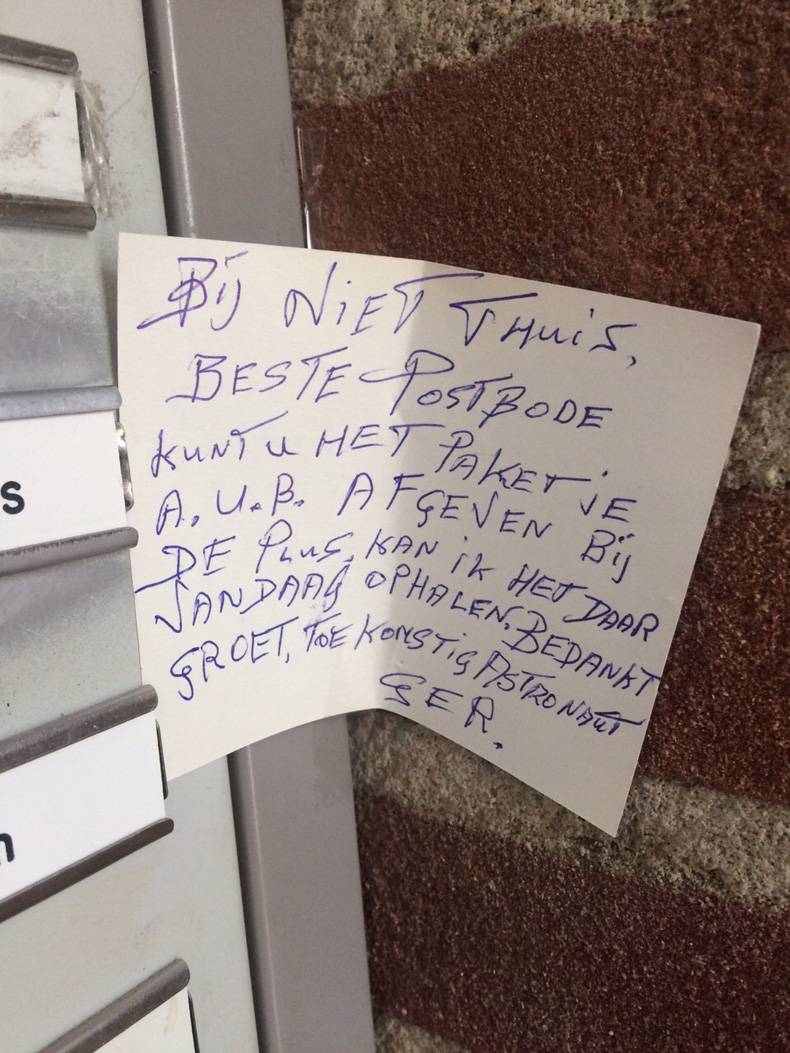 Bij NiET THuiS,
BESTE POSTBODE
KUNT U HET PAKETJE
A.U.B. AFGEVEN Bij
DE PLUS, KAN iK HET DAAR
VANDAAG OPHALEN. BEDANKT
GROET, TOEKOMSTiG ASTRONAUT
GER.
s
n